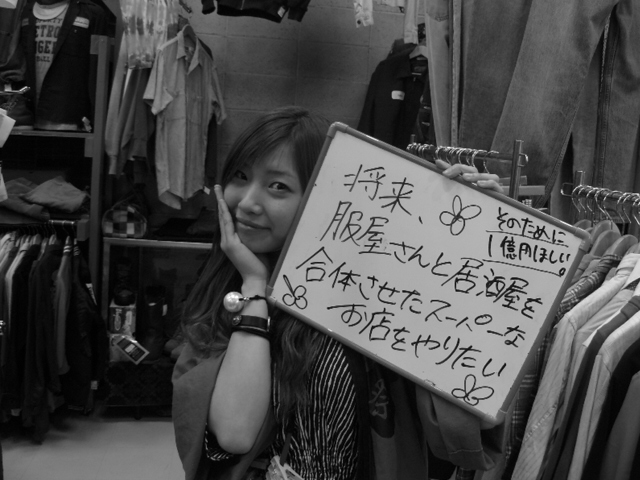 将来、
服屋さんと居酒屋を
合体させたスーパーな
お店をやりたい
そのために
1億円ほしい。